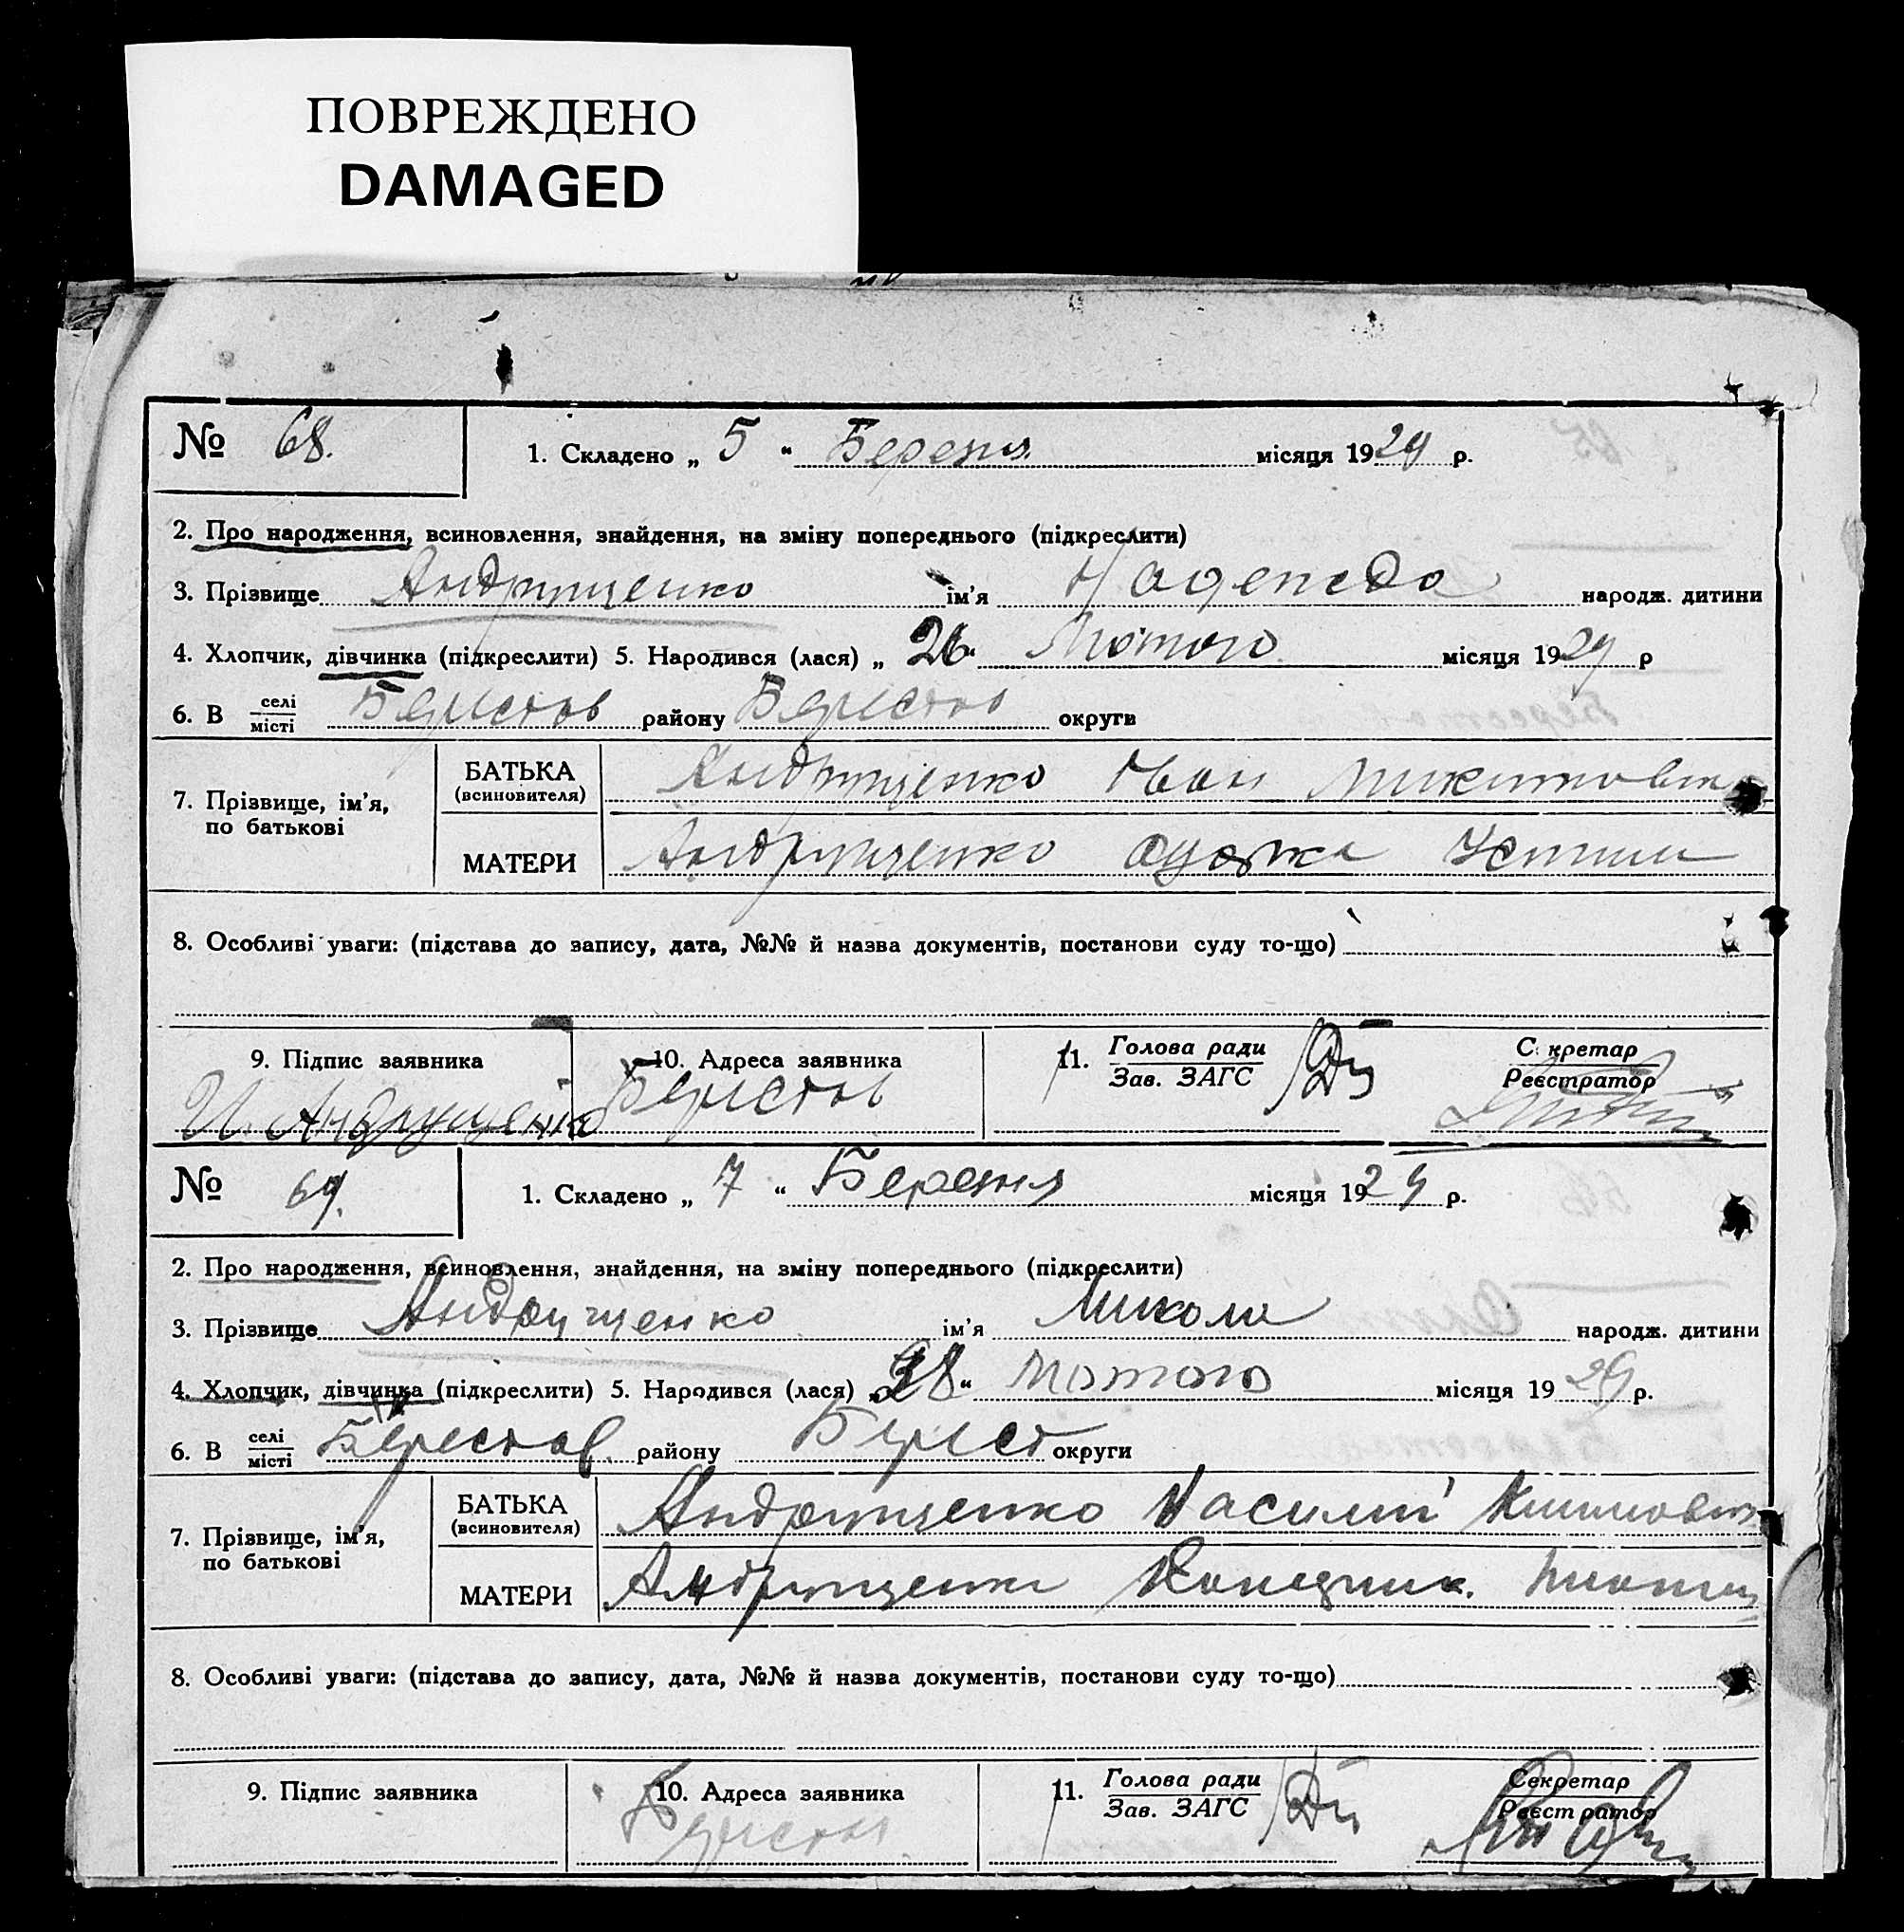 ПОВРЕЖДЕНО
DAMAGED
№ 68. 1. Складено „ 5 “ Березня місяця 1929 р.
2. Про народження, всиновлення, знайдення, на зміну попереднього (підкреслити)
3. Прізвище Андрущенко ім’я Надежда народж. дитини
4. Хлопчик, дівчинка (підкреслити) 5. Народився (лася) „ 26 “ Лютого місяця 1929 р
6. В селі/місті Берестов району Берестов округи
7. Прізвище, ім’я, по батькові
БАТЬКА (всиновителя) Андрущенко Иван Микитович
МАТЕРИ Андрущенко
8. Особливі уваги: (підстава до запису, дата, №№ й назва документів, постанови суду то-що)
9. Підпис заявника 10. Адреса заявника 11. Голова ради/Зав. ЗАГС С кретар/Реєстратор
И. Андрущенко Берестов
№ 69. 1. Складено „ 7 “ Березня місяця 1929 р.
2. Про народження, всиновлення, знайдення, на зміну попереднього (підкреслити)
3. Прізвище Андрущенко ім’я Микола народж. дитини
4. Хлопчик, дівчинка (підкреслити) 5. Народився (лася) „ 28 “ Лютого місяця 1929 р.
6. В селі/місті Берестов. району Берест округи
7. Прізвище, ім’я, по батькові
БАТЬКА (всиновителя) Андрущенко Василий
МАТЕРИ Андрущенко
8. Особливі уваги: (підстава до запису, дата, №№ й назва документів, постанови суду то-що)
9. Підпис заявника 10. Адреса заявника 11. Голова ради/Зав. ЗАГС Секретар/Реєстратор
Берестов